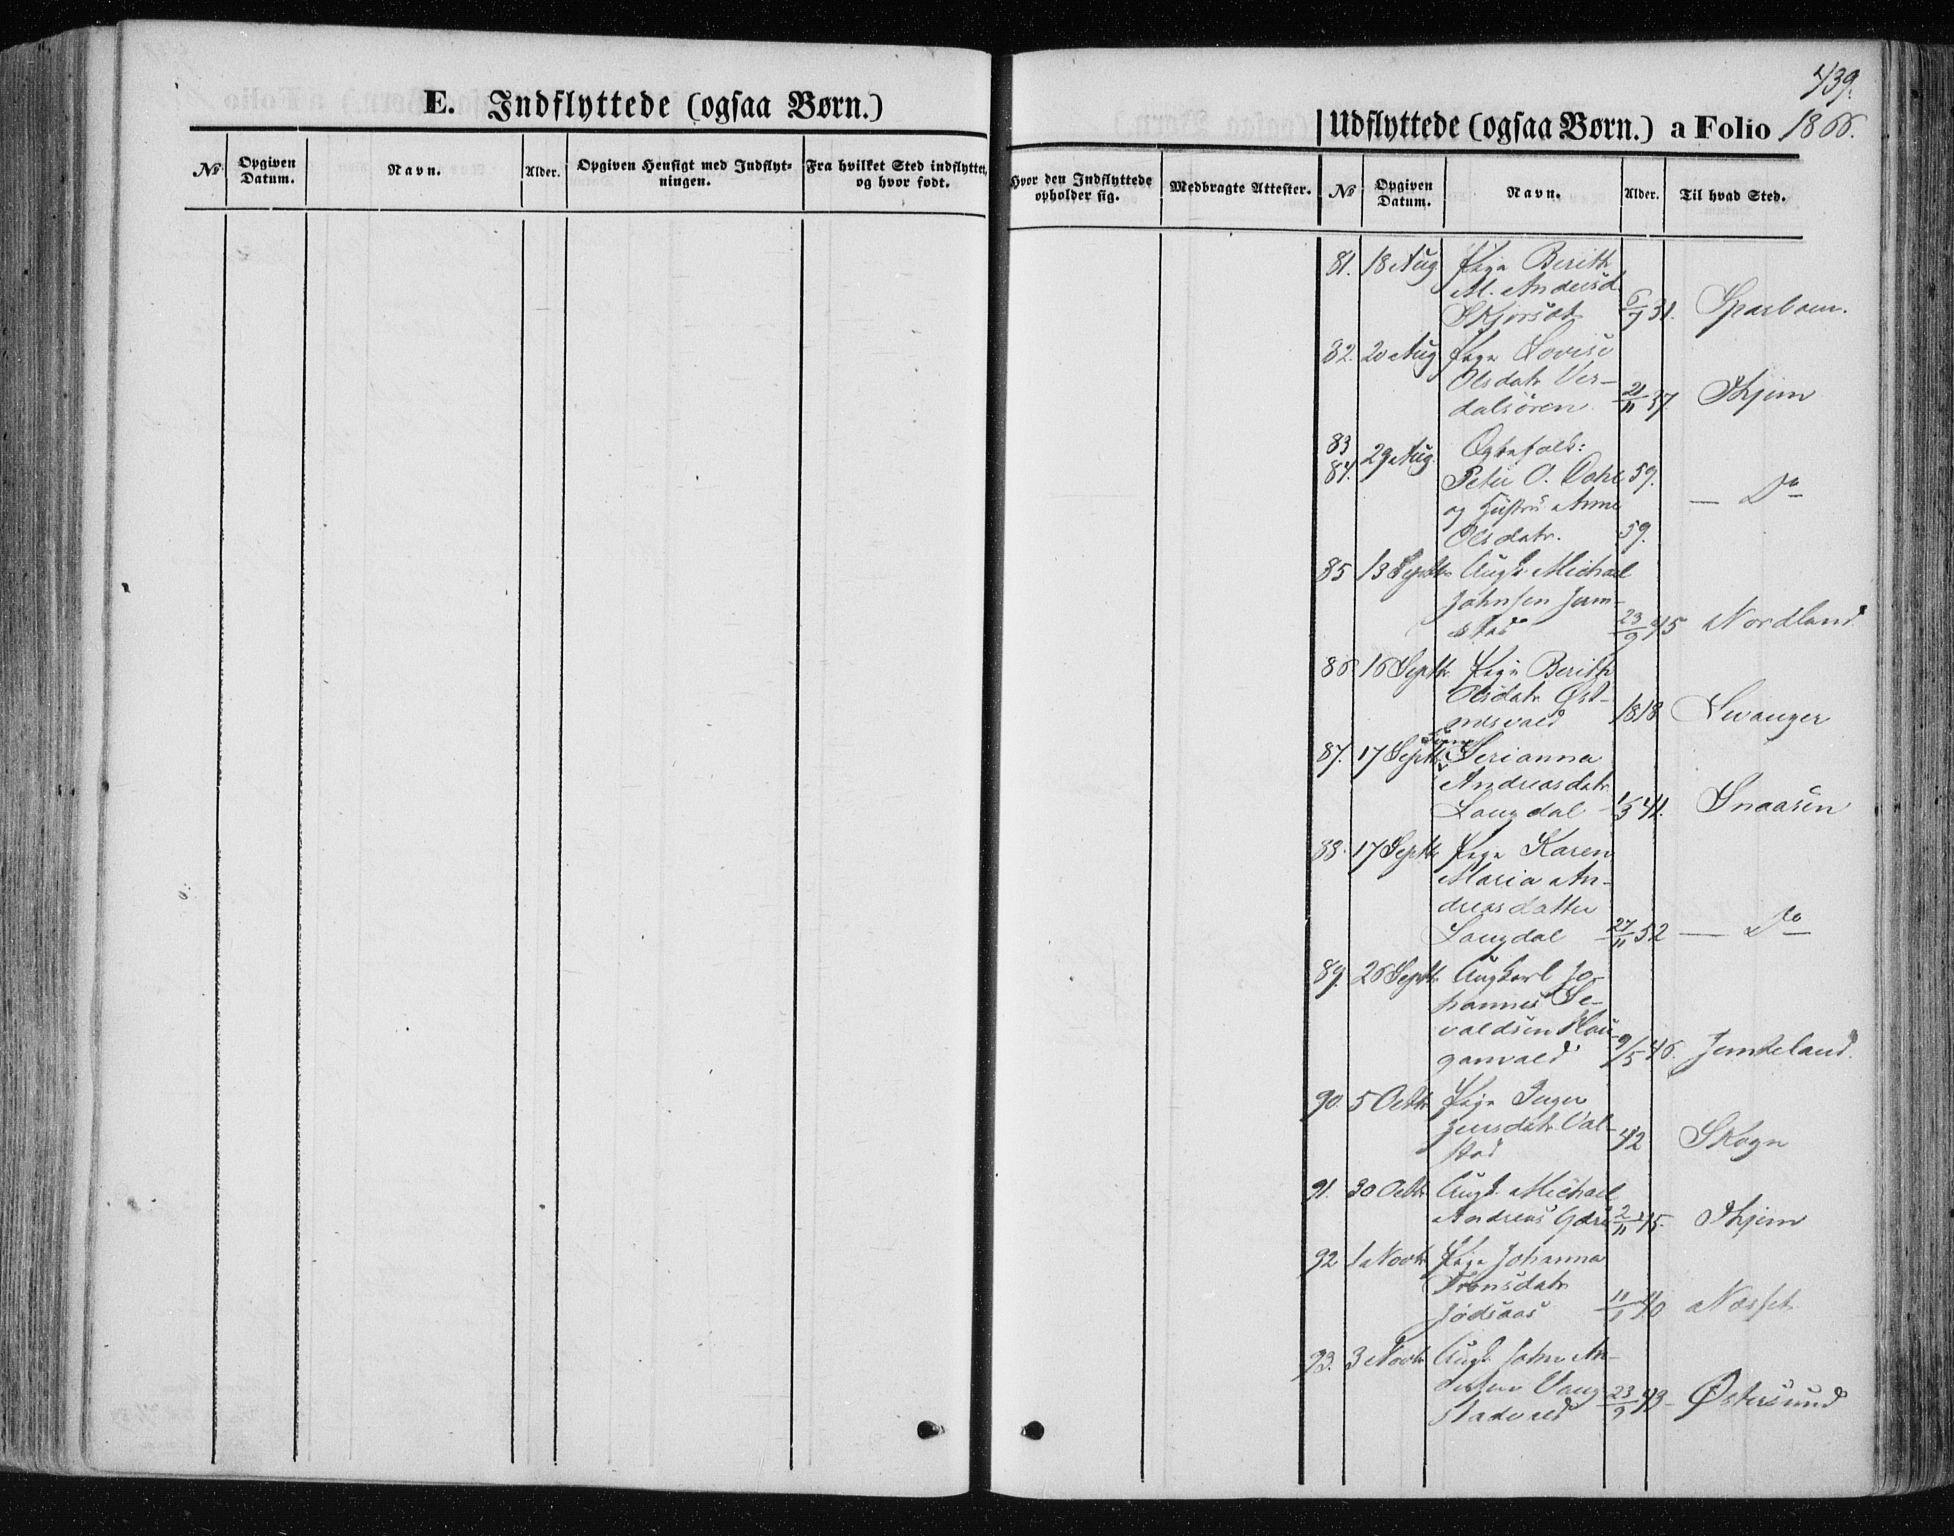 439.
E. Indflyttede (ogsaa Børn.)
Udflyttede (ogsaa Børn.) a Folio 1866.
No Opgiven Datum. Navn. Alder. Opgiven Hensigt med Indflytningen. Fra hvilket Sted indflyttet, og hvor født.
Hvor den Indflyttede opholder sig. Medbragte Attester. No Opgiven Datum. Navn. Alder. Til hvad Sted.
81. 18 Aug Pige Berith
M. Andersd
6/9 31. Sparboen.
82. 20 Aug Pige Lovise
Olsdatr Ver-
dalsören 21/11 37. Thjem
83
84. 29 Aug. Egtefolk:
Peter O. Dahl 59.
og Hustru Anne — Do
Olsdatr. 59.
85 13 Septbr Ungk. Michael
Johnsen Jerm-
stad 23/9 45 Nordland
86 16 Septbr Pige Berith
Olsdatr Øst-
1818 Levanger
87. 17 Septbr Serianna
Andreasdatr
Langdal 1/5 41. Snaasen
88. 17 Septbr Pige Karen
Maria An-
dreasdatter
Langdal 27/11 52 — Do
89. 26 Septbr Ungkarl Jo-
hannes Se-
valdsen Hau-
ganvald 9/5 46. Jemteland.
90. 5 Octbr Pige Inger
Jensdatr Val-
stad 42 Skogn
91. 30 Octbr Ungk. Michael
Andreas 2/11 45. Thjem
92 1 Novbr Pige Johanna
Tronsdatr
Jödsaas 11/1 40 Næsset
93. 3 Novbr Ungk. John An-
dersen Vang-
stadvald 23/9 43 Østersund